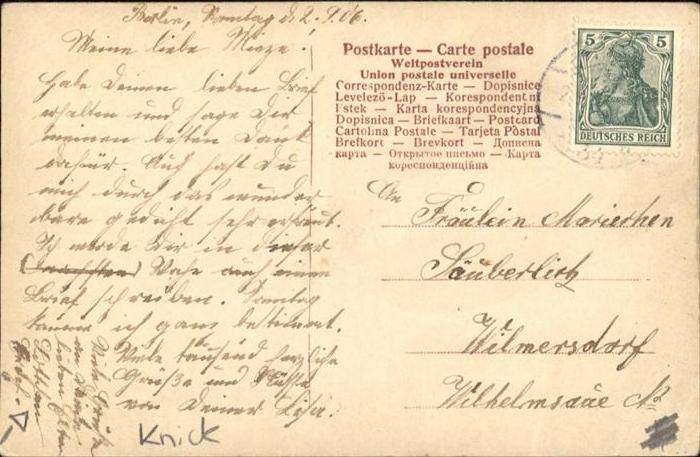 Berlin, Sonntag d. 2.9.06.
Meine liebe Mieze!
Habe Deinen lieben Brief
erhalten und sage Dir
meinen besten Dank
dafür. Auch hast Du
mich durch das wunder
bare Gedicht sehr erfreut.
Ich werde Dir in dieser
(nächsten) Woche auch einen
Brief schreiben. Sonntag
komme ich ganz bestimmt.
Viele tausend herzliche
Grüße und Küsse
von Deiner Lisa.
Viele Grüße
an Deine
lieben Eltern
Knick
Postkarte — Carte postale
Weltpostverein
Union postale universelle
Correspondenz-Karte — Dopisnice
Levelező-Lap — Korespondent ni
listek — Karta korespondencyjna
Dopisnica — Briefkaart — Postcard
Cartolina Postale — Tarjeta Postal
Brefkort — Brevkort — Дописна
карта — Открытое письмо — Карта
кореспонденційна
5 5
DEUTSCHES REICH
An
Fräulein Mariechen
Säuberlich
Wilmersdorf
Wilhelmsaue